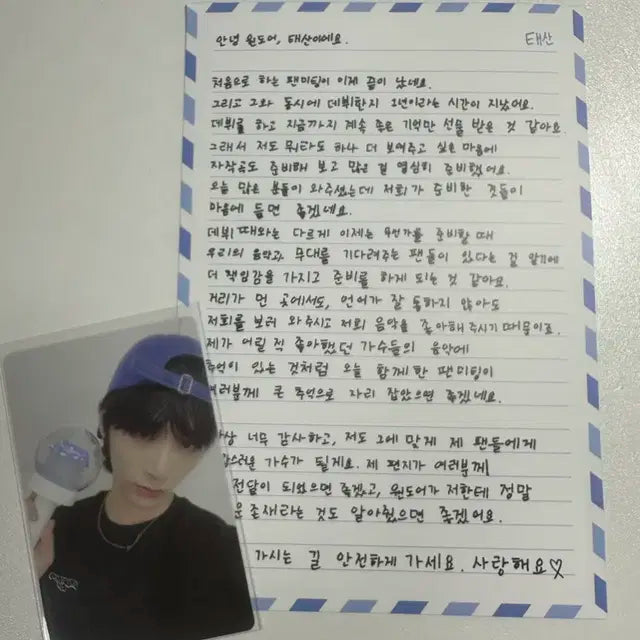 안녕 원도어, 태산이에요.
태산
처음으로 하는 팬미팅이 이제 끝이 났네요.
그리고 그와 동시에 데뷔한지 1년이라는 시간이 지났어요.
데뷔를 하고 지금까지 계속 좋은 기억만 선물 받은 것 같아요.
그래서 저도 뭐라도 하나 더 보여주고 싶은 마음에
자작곡도 준비해 보고 많은 걸 열심히 준비했어요.
오늘 많은 분들이 와주셨는데 저희가 준비한 것들이
마음에 들면 좋겠네요.
데뷔 때와는 다르게 이제는 무언가를 준비할 때
우리의 음악과 무대를 기다려주는 팬들이 있다는 걸 알기에
더 책임감을 가지고 준비를 하게 되는 것 같아요.
거리가 먼 곳에서도, 언어가 잘 통하지 않아도
저희를 보러 와주시고 저희 음악을 좋아해 주시기 때문이죠.
제가 어릴 적 좋아했던 가수들의 음악에
추억이 있는 것처럼 오늘 함께한 팬미팅이
여러분께 큰 추억으로 자리 잡았으면 좋겠네요.
너무 감사하고, 저도 그에 맞게 제 팬들에게
가수가 될게요. 제 편지가 여러분께
전달이 되었으면 좋겠고, 원도어가 저한테 정말
존재라는 것도 알아줬으면 좋겠어요.
가시는 길 안전하게 가세요. 사랑해요♡